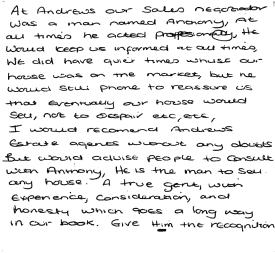 At Andrews our sales negotiator
was a man named Anthony, At
all times he acted professionally, He
would keep us informed at all times,
We did have quiet times whilst our
house was on the market, but he
would still phone to reassure us
that eventually our house would
sell, not to despair etc, etc,
I would recomend Andrews
Estate agents without any doubts
But would advise people to consult
with Anthony, He is the man to sell
any house. A true gent, with
Experience, consideration, and
honesty which goes a long way
in our book. Give Him the recognition